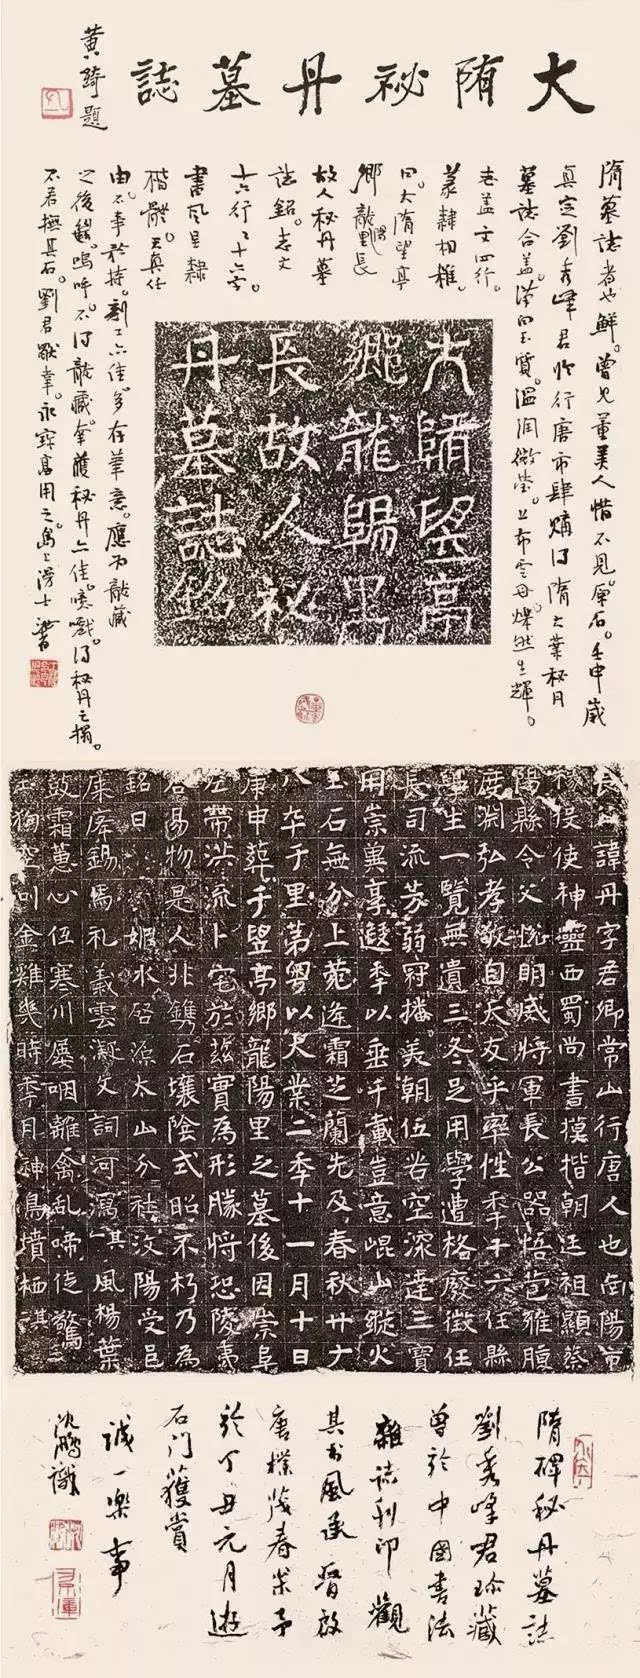 大隋祕丹墓誌
黄綺題
隋墓誌者也鮮。曾見董美人惜不見原石。壬申歲
真定劉秀峰君於行唐市肆購得隋大業秘丹
墓誌合蓋。漢白玉質。溫潤微瑩。上布雲母燦然生輝。
志蓋文四行。
篆隸相雜。
曰。大隋望亭
鄉龍陽里長
故人秘丹墓
誌銘。志文
十六行行十六字。
書風呈隸
楷體。天真任
由。不事矜持。刻工亦佳。多存筆意。應為龍藏
之後。嗚呼。不得龍藏。拿獲秘丹亦佳。噫戲。得秘丹之搨。
不若撫其石。劉君幸。永寶享用之。
大隋望亭
鄉龍陽里
長故人祕
丹墓誌銘
長諱丹字君卿常山行唐人也向陽市
投使神靈西蜀尚書模楷朝廷祖顯蔡
陽縣令父悅明威將軍長公器悟苞雅腹
度淵弘孝敬自天友乎率性年十六任縣
學生一覽無遺三冬足用學遭格廢徵任
長司流芳弱冠播美朝伍苦空深達三寶
用崇冀享遐季以垂千載豈意崐山縱火
玉石無分上菀逢霜芝蘭先及春秋廿有
八卒于里第粵以大業二年十一月十日
庚申葬于望亭鄉龍陽里之墓後因崇阜
左帶洪流卜宅於茲實為形勝將恐陵夷
谷易物是人非鐫石壤陰式昭不朽乃為
銘曰 媯水啓源太山分社汶陽受邑
康庠錫馬礼義雲凝文詞河瀉其風楊葉
鼓霜蕙心伍寒川屢咽離禽亂啼徒驚
狗空叫金雞幾時季月神鳥墳栖其
隋碑秘丹墓誌
劉秀峰君珍藏
曾於中國書法
雜誌刊印觀
其書風承晉啟
唐樸茂春容予
於丁丑元月遊
石门獲賞
誠一樂事
沈鵬識